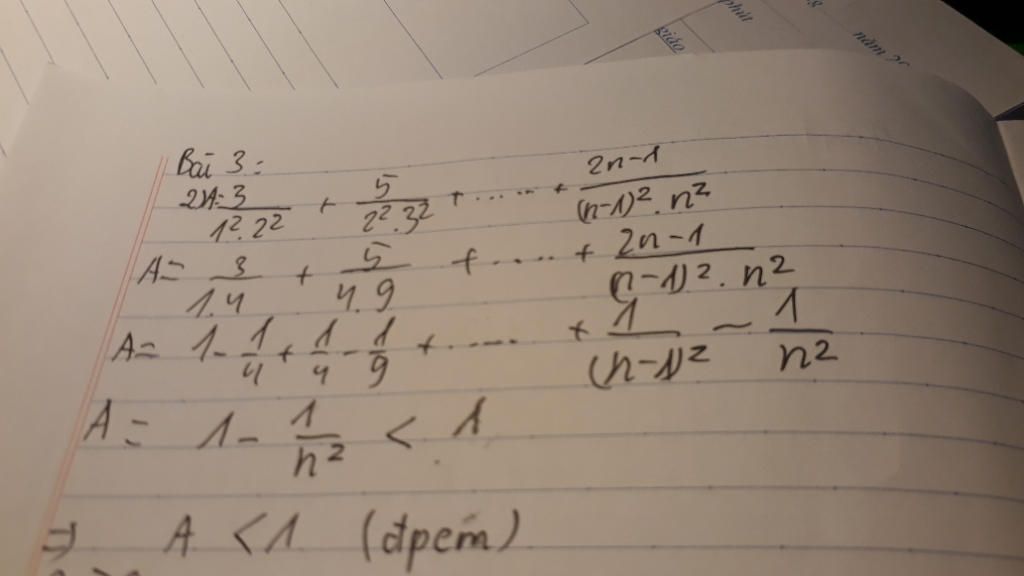 phút
giáo
năm
Bài 3:
2)A= 3/(1².2²) + 5/(2².3²) + ..... + (2n-1)/((n-1)².n²)
A= 3/(1.4) + 5/(4.9) + ..... + (2n-1)/((n-1)².n²)
A= 1 - 1/4 + 1/4 - 1/9 + ..... + 1/(n-1)² - 1/n²
A= 1 - 1/n² < 1
=> A < 1 (đpcm)